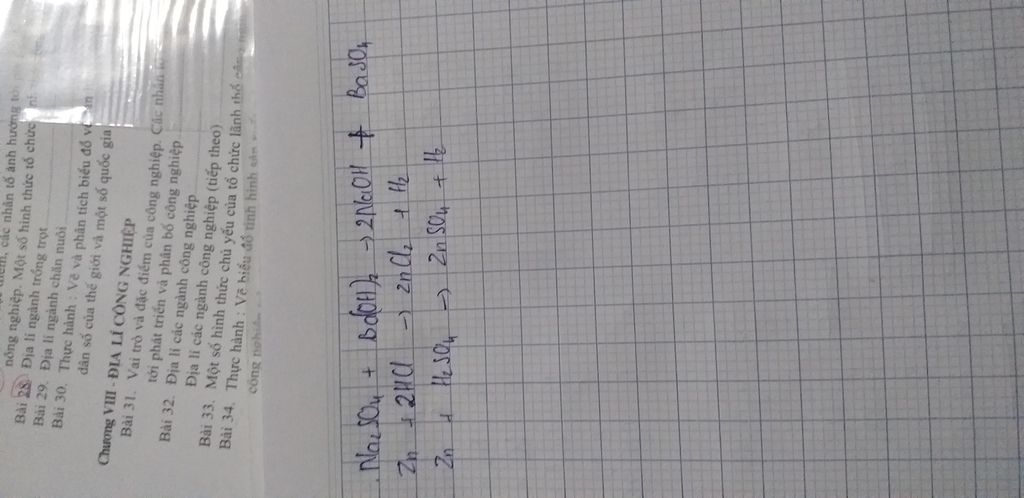 nông nghiệp. Một số hình thức tổ chức
Bài 28. Địa lí ngành trồng trọt
Bài 29. Địa lí ngành chăn nuôi
Bài 30. Thực hành : Vẽ và phân tích biểu đồ về
dân số của thế giới và một số quốc gia
Chương VIII - ĐỊA LÍ CÔNG NGHIỆP
Bài 31. Vai trò và đặc điểm của công nghiệp. Các nhân
tới phát triển và phân bố công nghiệp
Bài 32. Địa lí các ngành công nghiệp
Địa lí các ngành công nghiệp (tiếp theo)
Bài 33. Một số hình thức chủ yếu của tổ chức lãnh thổ
Bài 34. Thực hành : Vẽ biểu đồ tình hình sản
Na₂SO₄ + Ba(OH)₂ → 2NaOH + BaSO₄
Zn + 2HCl → ZnCl₂ + H₂
Zn + H₂SO₄ → ZnSO₄ + H₂